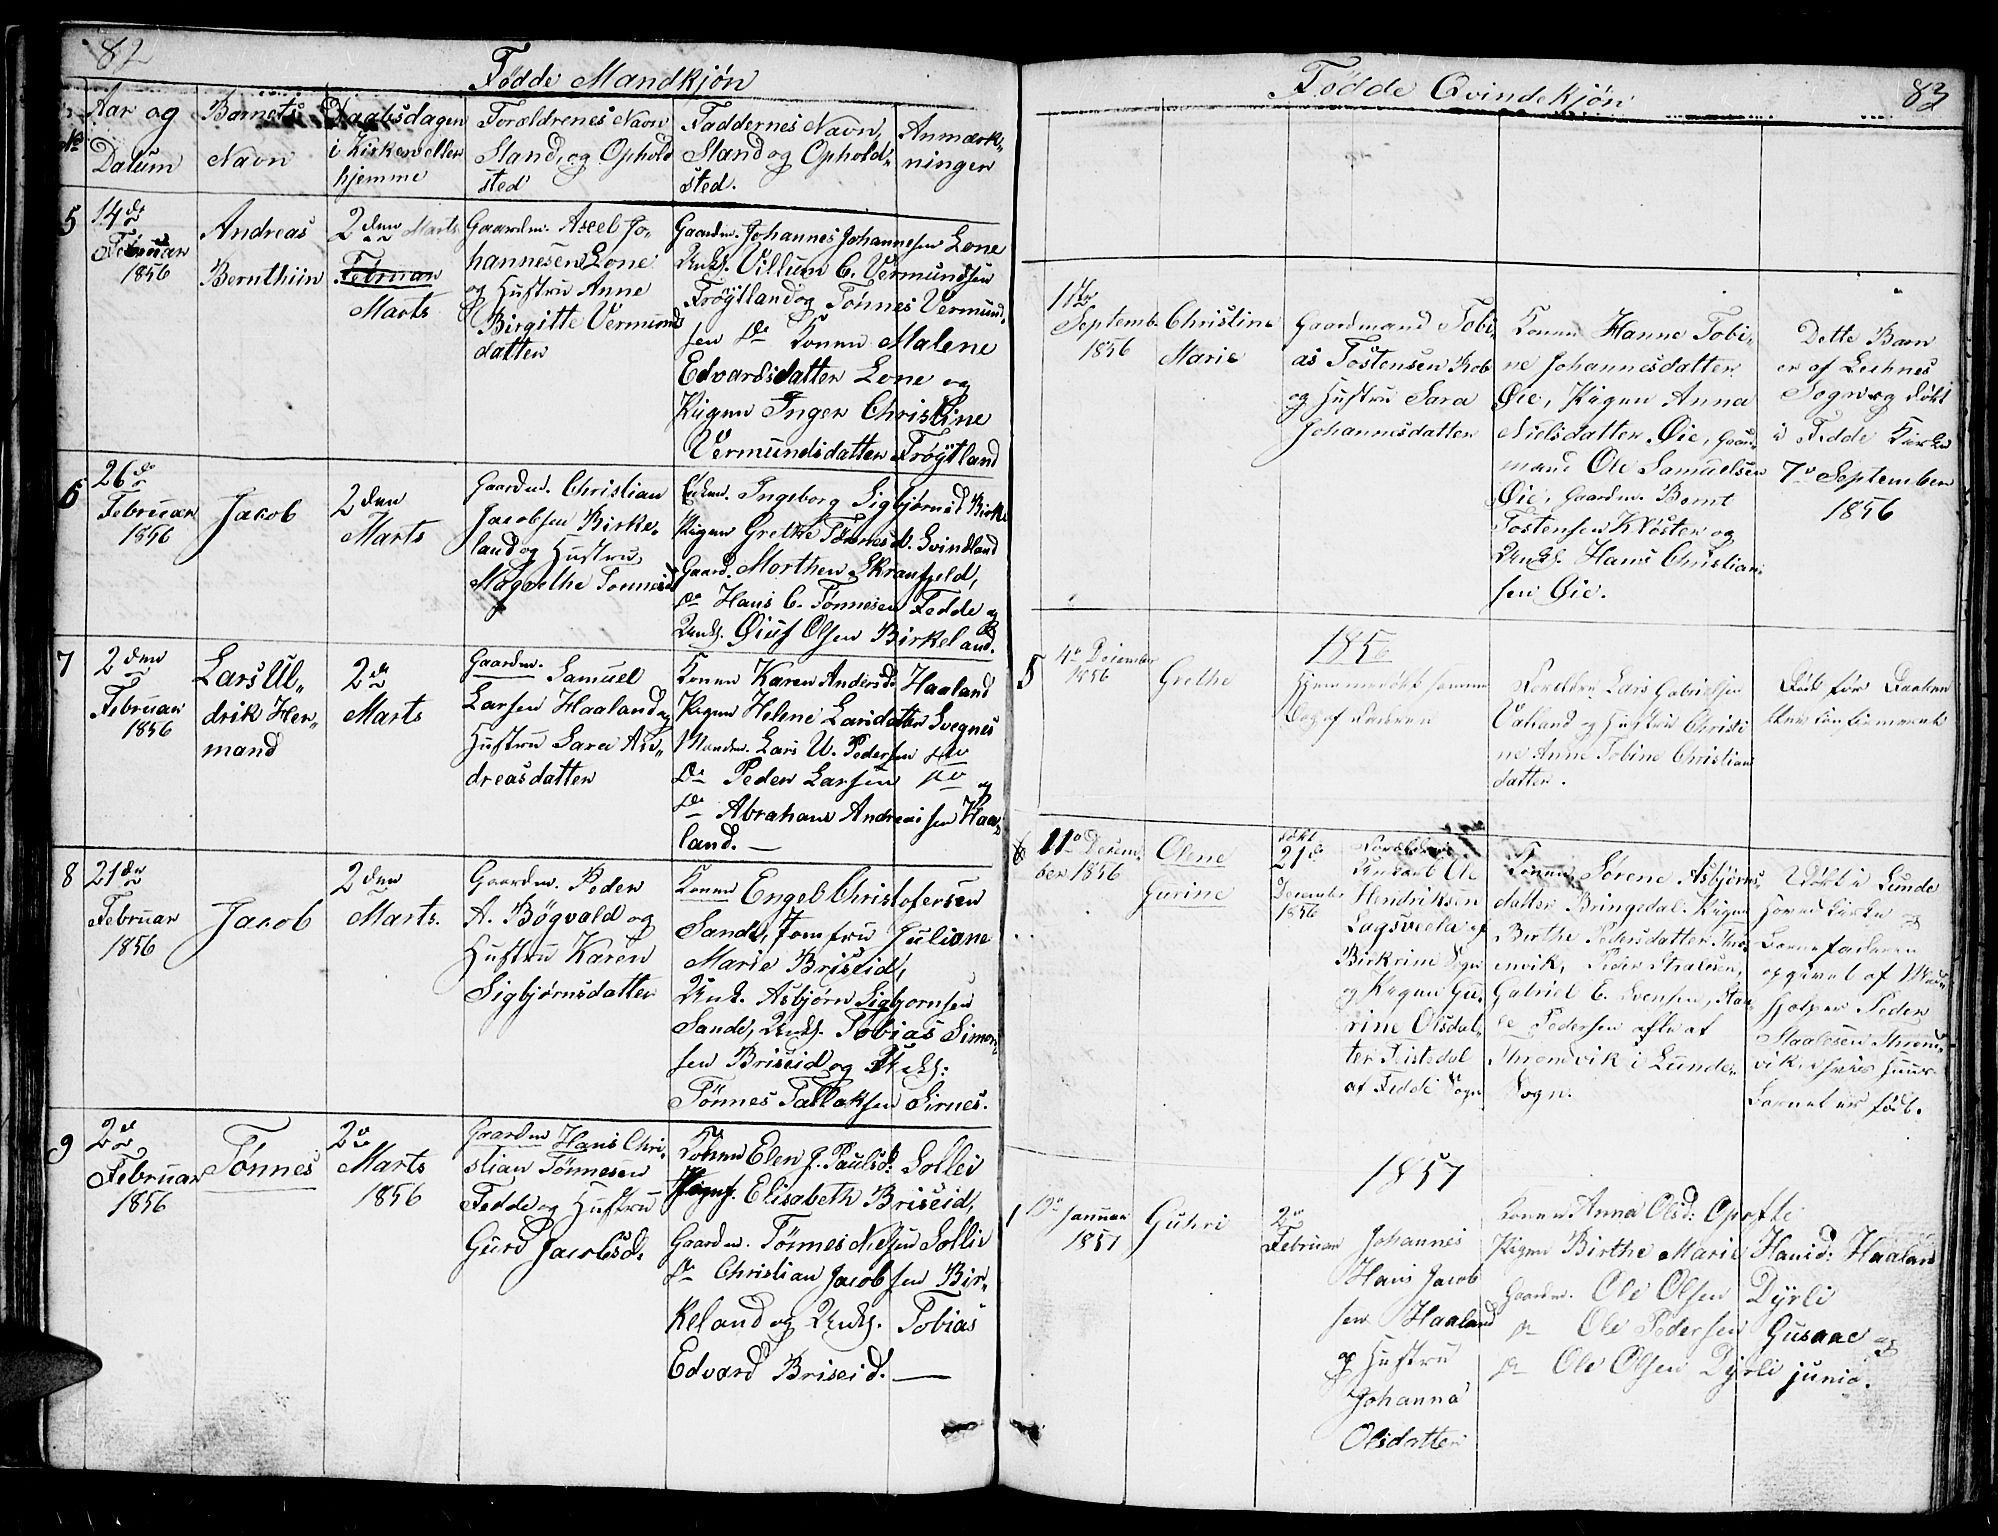 82
Fødde Mandkjøn
No
Aar og
Datum
Barnets
Navn
Daabsdagen
i Kirken eller
hjemme
Forældrenes Navn
Stand, og Ophold
sted
Faddernes Navn,
Stand og Opholds
sted.
Anmærk-
ninger
5
14de
Februar
1856
Andreas
Bernthiin
2den Marts
Februar
Marts
Gaardm. Axel Jo-
hannesen Lone
og Hustru Anne
Birgitte Vermunds
datter
Gaardm. Johannes Johannesen Lone
Unks. Villum C. Vermundsen
Frøytland og Tønnes Vermund-
sen do Konen Malene
Edvardsdatter Lone og
Pigen Inger Christine
Vermundsdatter Frøytland
6
26de
Februar
1856
Jacob
2den
Marts
Gaardm. Christian
Jacobsen Birke-
land og Hustru
Magrethe Tonnesd
Enken. Ingeborg Sigbjørnsd Birkl
Pigen Grethe Tønnesd. Svindland
Gaard. Morthen Skranfjeld,
do Hans C. Tønnesen Fedde og
Unks. Øiuf Olsen Birkeland.
7
2den
Februar
1856
Lars Ul-
drik Her-
mand
2de
Marts
Gaardm. Samuel
Larsen Haaland og
Hustru Sara An-
dreasdatter
Konen Karen Andersd. Haaland
Pigen Helene Larsdatter Svegnes
Mandm. Lars U. Pedersen do
do Peder Larsen do og
do Abraham Andreassen Haa-
land.
8
21de
Februar
1856
Jacob
2den
Marts.
Gaardm. Peder
A. Bøgvald og
Hustru Karen
Sigbjørnsdatter
Konen Engel Christofersen
Sande, Jomfru Juliane
Marie Briseid,
Unk. Asbjørn Sigbjornsen
Sande, Unks. Tobias Simon-
sen Briseid og Unks:
Tønnes Tallaksen Sirnes.
9
2de
Februar
1856
Tønnes
2de
Marts
1856
Gaardm Hans Chri-
stian Tønnesen
Fedde og Hustru
Gurd Jacobsd.
Konen Elen J. Paulsd: Sollei
Pigen. Elisabeth Briseid,
Gaardm. Tønnes Nilsen Sollie
do Christian Jacobsen Bir-
keland og Unks. Tobias
Edvard Briseid.
Fødde Qvindekjøn
83
Septemb.
1856
Christine
Marie
Gaardmand Tobi-
as Tostensen Rob
og Hustru Sara
Johannesdatter
Konen Hanne Tobi-
ne Johannesdatter
Øie, Pigen Anna
Nielsdatter Øie, Gaard-
mand Ole Samuelsen
Øie, Gaardm. Bernt
Tostensen Kloster og
Unks. Hans Christian-
sen Øie.
Dette Barn
er af Leshnes
Sogn og døbt
i Fedde Kirke
7de September
1856
5
4de December
1856
Grethe
1856
Hjemmedøbt samme
Dag af Faderen
Forældre Lars Gabrielsen
Vatland og Hustru Christi
ne Anne Tobine Christian
datter.
Død før Daaben
blev konfirmeret
6
11de Decem-
ber 1856
Olene
Gurine
døbt
21de
December
1856
Forældre
Unkarl Ole
Hendriksen
Lagsveela af
Birkrine Sogn
og Pigen Gu-
rine Olsdat-
ter Feistedal
af Fedde Sogn
Konen Sørene Asbjørns-
datter Bringedal. Pigen
Birthe Pedersdatter Thro-
emvik, Peder Stralesen,
Gabriel E. Svensen, Staa-
le Pedersen alle af
Thromvik i Lunde
Sogn.
Døbt i Lunde
Hovedkirke og
Barnefaderen
opgivet af Med-
hjelper Peder
Staalesen Throm-
vik i hvis Huus
Barnet er født.
1857
1
Januar
1857
Guhri
2de
Februar
Johannes
Hans Jacob
sen Haaland
og Hustru
Johanna
Olsdatter
Konen Anna Olsd: Opofte
Pigen Birthe Marie Hansd: Haaland
Gaardm. Ole Olsen Dyrli
do Ole Pedersen Gusaae og
do Ole Olsen Dyrli junio.